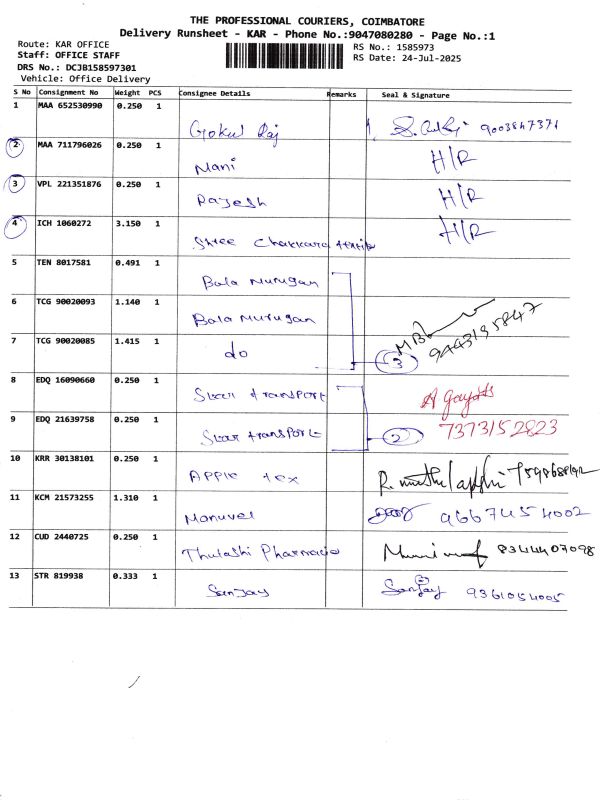 THE PROFESSIONAL COURIERS, COIMBATORE
Delivery Runsheet - KAR - Phone No.:9047080280 - Page No.:1
Route: KAR OFFICE
Staff: OFFICE STAFF
DRS No.: DCJB158597301
Vehicle: Office Delivery
RS No.: 1585973
RS Date: 24-Jul-2025
S No Consignment No Weight PCS Consignee Details Remarks Seal & Signature
1 MAA 652530990 0.250 1 Gokul Raj 9003847371
2 MAA 711796026 0.250 1 Mani H/R
3 VPL 221351876 0.250 1 Rajesh H/R
4 ICH 1060272 3.150 1 Shree H/R
5 TEN 8017581 0.491 1 Bala Murugan
6 TCG 90020093 1.140 1 Bala Murugan
7 TCG 90020085 1.415 1 do 3 9443195847
8 EDQ 16090660 0.250 1 Star transport
9 EDQ 21639758 0.250 1 Star transport 2 7373152823
10 KRR 30138101 0.250 1 Apple tex
11 KCM 21573255 1.310 1 Manuvel 9667454002
12 CUD 2440725 0.250 1 Thulashi Pharmacie 8344407098
13 STR 819938 0.333 1 Sanjay Sanjay 9361054005